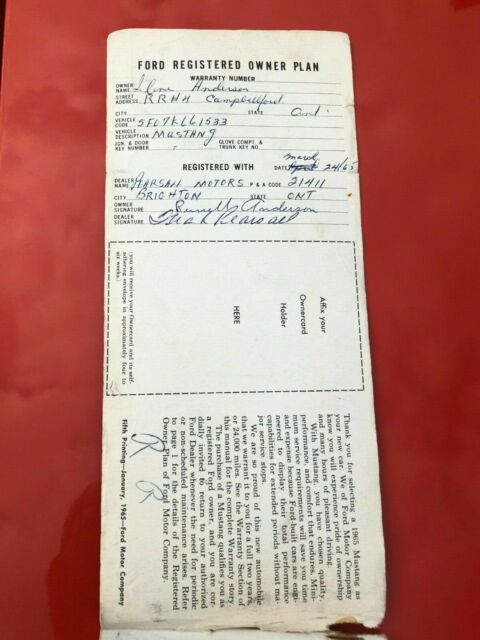 FORD REGISTERED OWNER PLAN
WARRANTY NUMBER
OWNER NAME Anderson
STREET ADDRESS RR#4 Campbellford
CITY STATE Ont
VEHICLE CODE 5F07K661533
VEHICLE DESCRIPTION MUSTANG
IGN & DOOR KEY NUMBER GLOVE COMPT. & TRUNK KEY NO.
REGISTERED WITH DATE march 24/65
DEALER NAME PEARSALL MOTORS P & A CODE 21411
CITY BRIGHTON STATE ONT
OWNER SIGNATURE Russell Anderson
DEALER SIGNATURE Pearsall
Affix your
Ownercard
Holder
HERE
(you will receive your Ownercard and its self-
adhering envelope in approximately four to
six weeks.)
Thank you for selecting a 1965 Mustang as
your new car. We of Ford Motor Company
know you will experience pride of ownership
and many hours of pleasant driving.
With Mustang, you have chosen quality,
performance, and comfort that endures. Mini-
mum service requirements will save you time
and expense because Ford-built cars are engi-
neered to display their total performance
capabilities for extended periods without ma-
jor service stops.
We are so proud of this new automobile
that we warrant it to you for a full two years,
or 24,000 miles. See the Warranty Section of
this manual for the complete Warranty story.
The purchase of a Mustang qualifies you as
a registered Ford owner, and you are cor-
dially invited to return to your authorized
Ford Dealer whenever the need for periodic
or non-scheduled maintenance arises. Refer
to page 1 for the details of the Registered
Owner Plan of Ford Motor Company.
Fifth Printing—January, 1965—Ford Motor Company